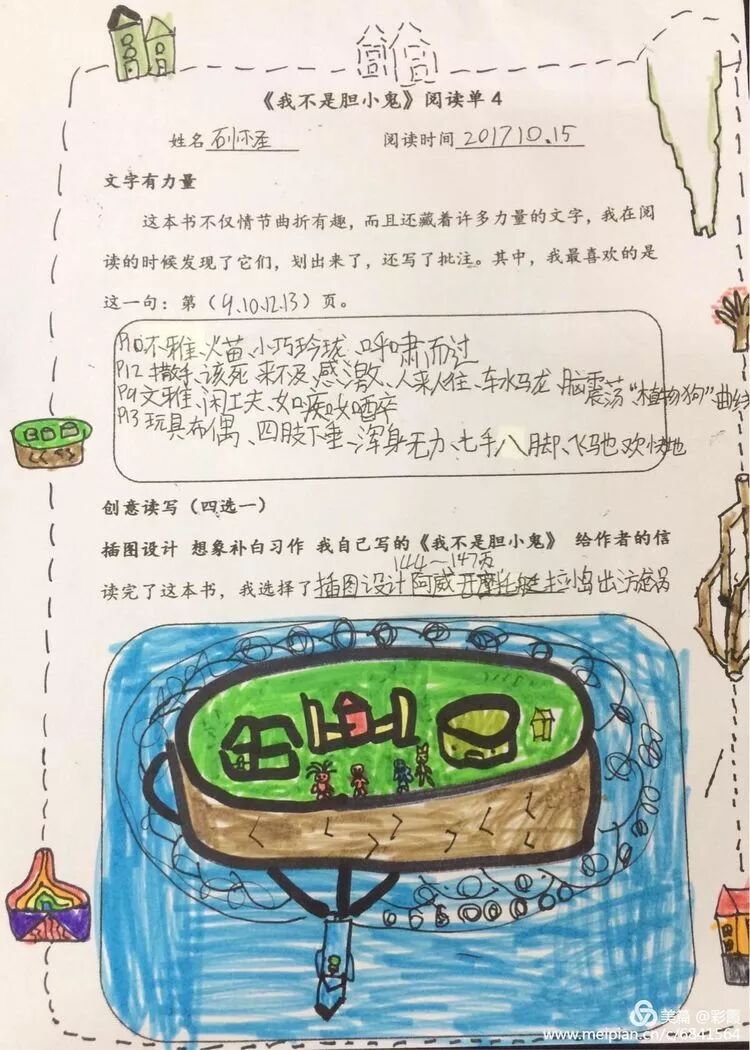 《我不是胆小鬼》阅读单 4
姓名 石怀圣 阅读时间 2017.10.15
文字有力量
这本书不仅情节曲折有趣，而且还藏着许多力量的文字，我在阅
读的时候发现了它们，划出来了，还写了批注。其中，我最喜欢的是
这一句：第（9.10.12.13）页。
P10不雅、火苗、小巧玲珑、呼啸而过
P12 撒手、该死、来不及、感激、人来人往、车水马龙、脑震荡"植物狗"曲线
P9 文雅、闲工夫、如痴如醉
P13 玩具布偶、四肢下垂、浑身无力、七手八脚、飞驰、欢快地
创意读写（四选一）
插图设计 想象补白习作 我自己写的《我不是胆小鬼》 给作者的信
144～147页
读完了这本书，我选择了插图设计阿威开摩托艇拉小岛出漩涡
美篇 @彩霞
www.meipian.cn/c/6841564